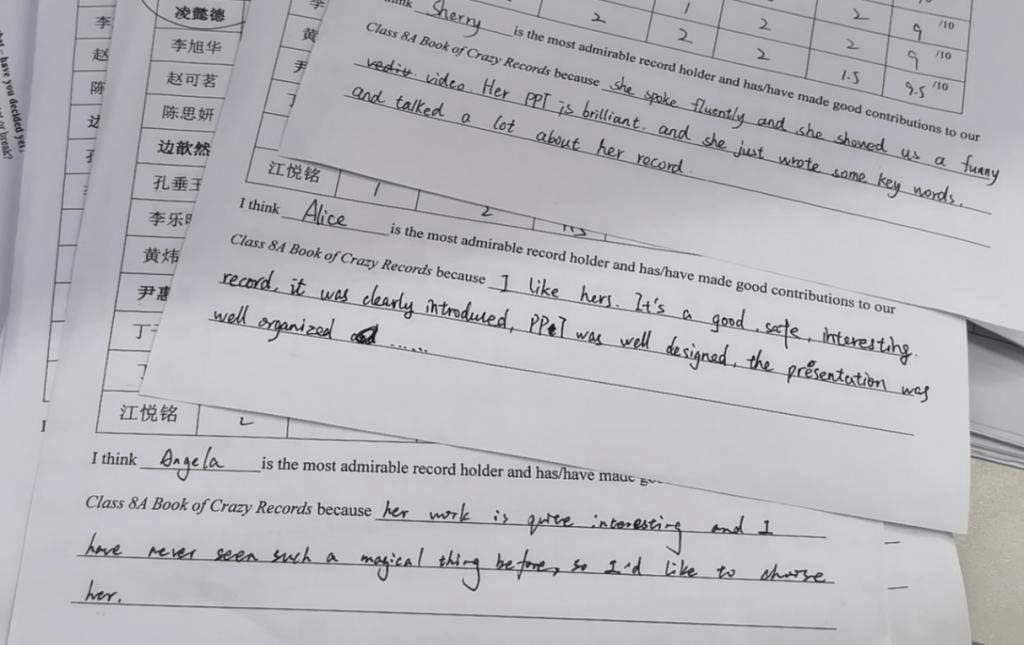 have you decided yet
or break?
李
赵
陈
凌懿德
李旭华
赵可茗
陈思妍
边歆然
孔垂
李乐
黄炜
尹惠
丁
江悦铭 2
黄
2 1 2 2 9 /10
2 2 2 9 /10
2 1.5 9.5 /10
Sherry is the most admirable record holder and has/have made good contributions to our
Class 8A Book of Crazy Records because she spoke fluently and she showed us a funny
video. Her PPT is brilliant. and she just wrote some key words.
and talked a lot about her record.
江悦铭 1 2 1.5
I think Alice is the most admirable record holder and has/have made good contributions to our
Class 8A Book of Crazy Records because I like hers. It's a good, safe, interesting.
record, it was clearly introduced, PPT was well designed, the presentation was
well organized ......
I think Angela is the most admirable record holder and has/have made
Class 8A Book of Crazy Records because her work is quite interesting and I
have never seen such a magical thing before, so I'd like to choose
her.